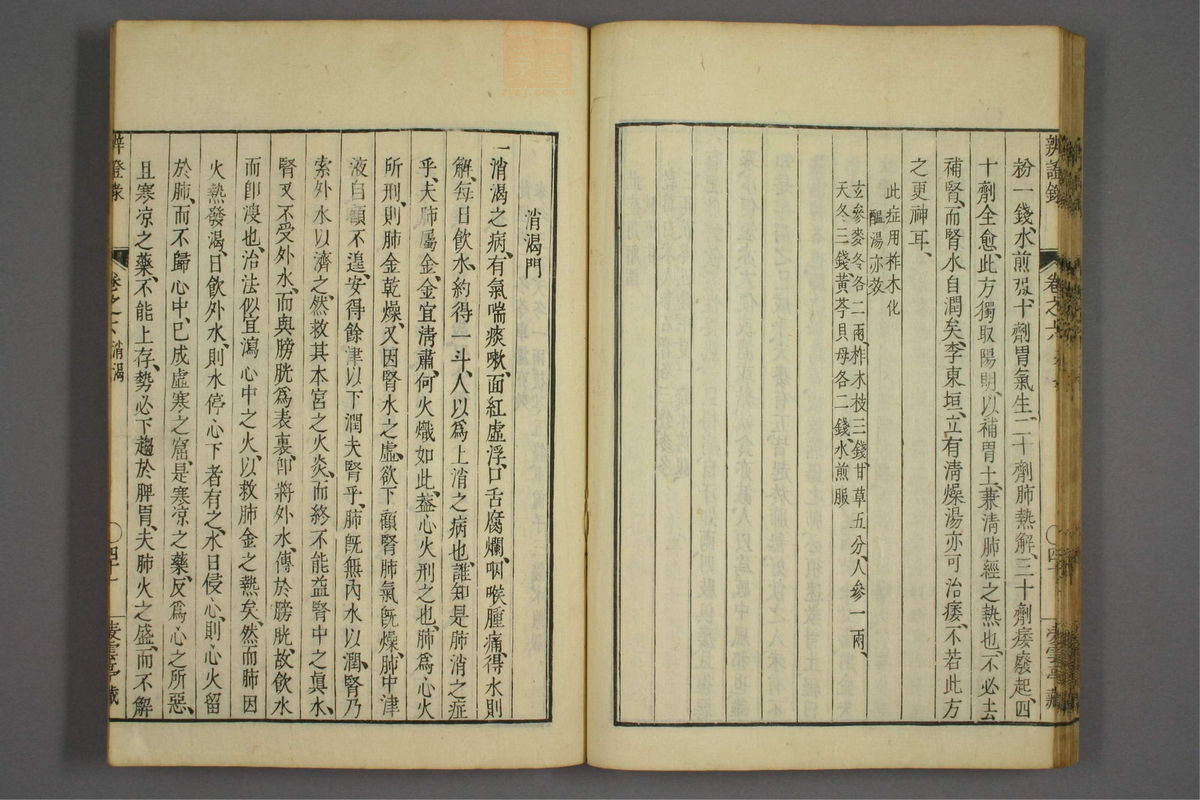 辨證錄
卷之六
粉一錢、水煎服、十劑胃氣生、二十劑肺熱解、三十劑痿廢起、四
十劑全愈、此方獨取陽明、以補胃土、兼清肺經之熱也、不必去
補腎、而腎水自潤矣、李東垣、立有清燥湯亦可治痿、不若此方
之更神耳、
此症用柞木化
醞湯亦效
玄參麥冬各二兩、柞木枝三錢甘草五分、人參一兩、
天冬三錢、黃芩貝母各二錢、水煎服
消渴門
一消渴之病、有氣喘痰嗽、面紅虛浮、口舌腐爛、咽喉腫痛、得水則
解、每日飲水、約得一斗、人以爲上消之病也、誰知是肺消之症
乎、夫肺屬金、金宜清肅、何火熾如此、蓋心火刑之也、肺爲心火
所刑、則肺金乾燥、又因腎水之虛、欲下顧腎肺氣、旣燥、肺中津
液自顧不遑、安得餘津以下潤夫腎乎、肺旣無內水以潤、腎乃
索外水以濟之、然救其本宮之火炎、而終不能益腎中之眞水、
腎又不受外水、而與膀胱爲表裏、卽將外水、傳於膀胱、故飲水
而卽溲也、治法似宜瀉心中之火、以救肺金之熱矣、然而肺因
火熱發渴、日飲外水、則水停心下者有之、水日侵心、則心火留
於肺、而不歸心中、已成虛寒之窟、是寒凉之藥、反爲心之所惡、
且寒凉之藥、不能上存、勢必下趨於脾胃、夫肺火之盛、而不解
消渴